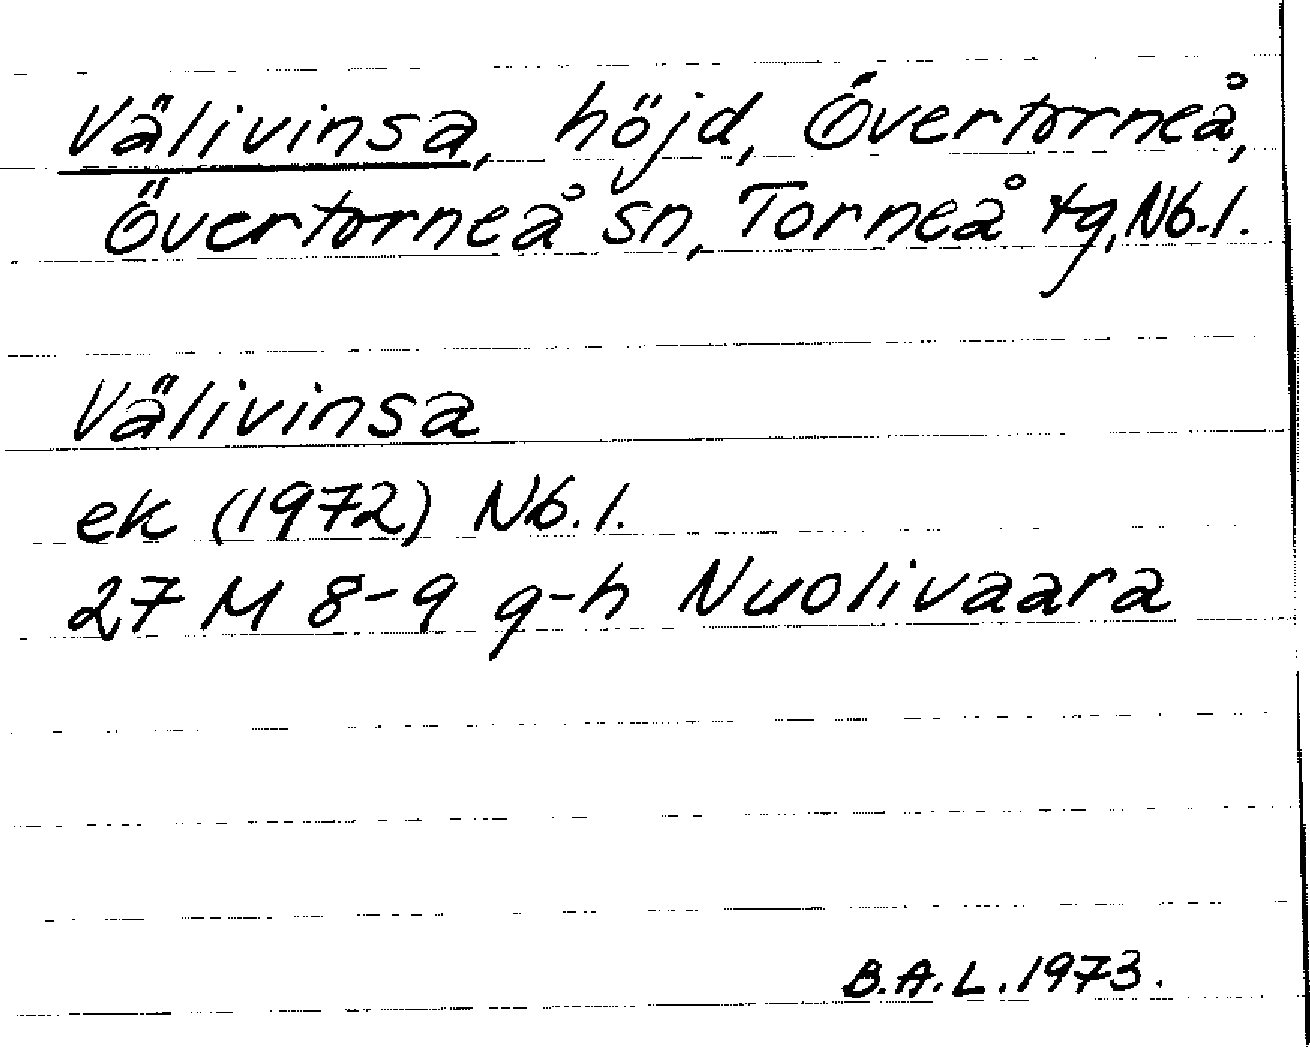 Välivinsa, höjd, Övertorneå,
Övertorneå sn, Torneå tg, Nb.l.
Välivinsa
ek (1972) Nb.l.
27 M 8-9 g-h Nuolivaara
B.A.L. 1973.